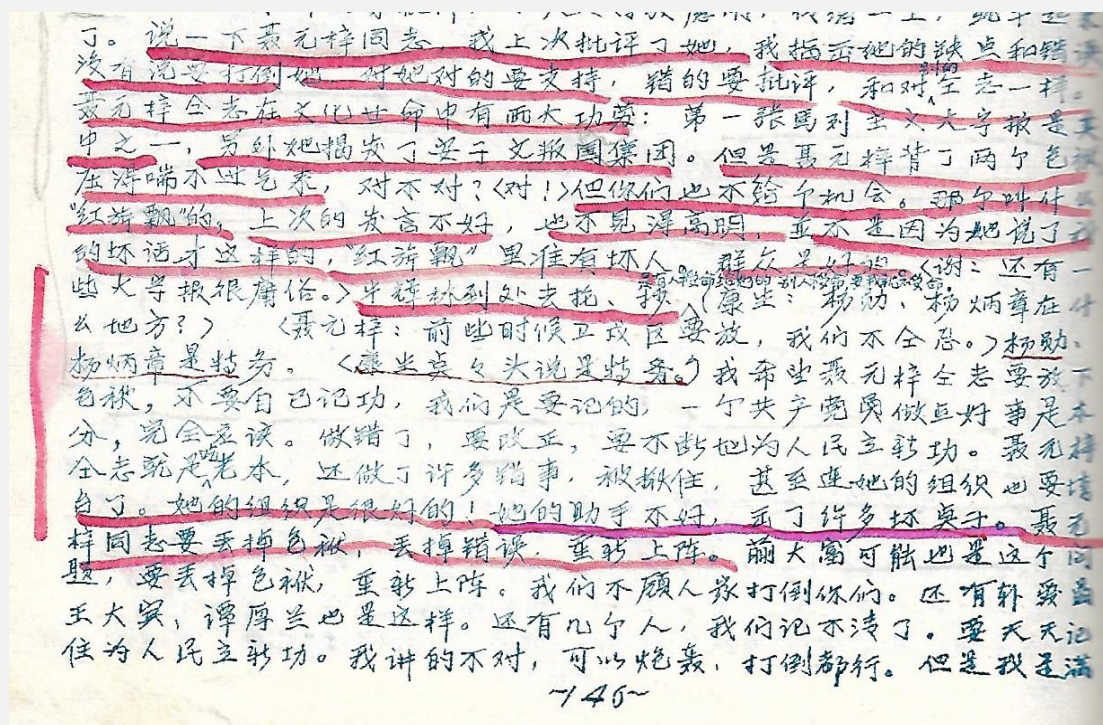 了。说一下聂元梓同志，我上次批评了她，我指出她的缺点和错误
没有说要打倒她，对她对的要支持，错的要批评，和对别的仝志一样。
聂元梓仝志在文化革命中有两大功劳：第一張馬列主义大字报是其
中之一，另外她揭发了安子文叛囯集团。但是聂元梓背了两个包袱
压得喘不过气来，对不对？〈对！〉但你们也不给个机会。那个叫什么
“红旂飘”的，上次的发言不好，也不見得高明，並不是因为她说了
的坏话才这样的，“红旂飘”里准有坏人，群众是好的。〈谢：还有一
些大字报很庸俗。〉牛辉林到处去托、抄（康生：杨勋、杨炳章在什
么地方？）〈聂元梓：前些时候卫戍区要放，我们不仝意。〉杨勋、
杨炳章是特务。〈康生点々头说是特务。〉我希望聂元梓仝志要放下
包袱，不要自己记功，我们是要记的，一个共产党员做点好事是本
分，完全应该。做错了，要改正，要不断地为人民立新功。聂元梓
仝志就是吃老本，还做了许多错事，被揪住，甚至連她的组织也要垮
台了。她的组织是很好的！她的助手不好，出了许多坏点子。聂元
梓同志要丢掉包袱，丢掉错误，重新上阵。蒯大富可能也是这个问
题，要丢掉包袱，重新上阵。我们不願人家打倒你们。还有韩爱晶
王大宾，谭厚兰也是这样。还有几个人，我们记不清了。要天天记
住为人民立新功。我讲的不对，可以炮轰，打倒都行。但是我是满
~146~